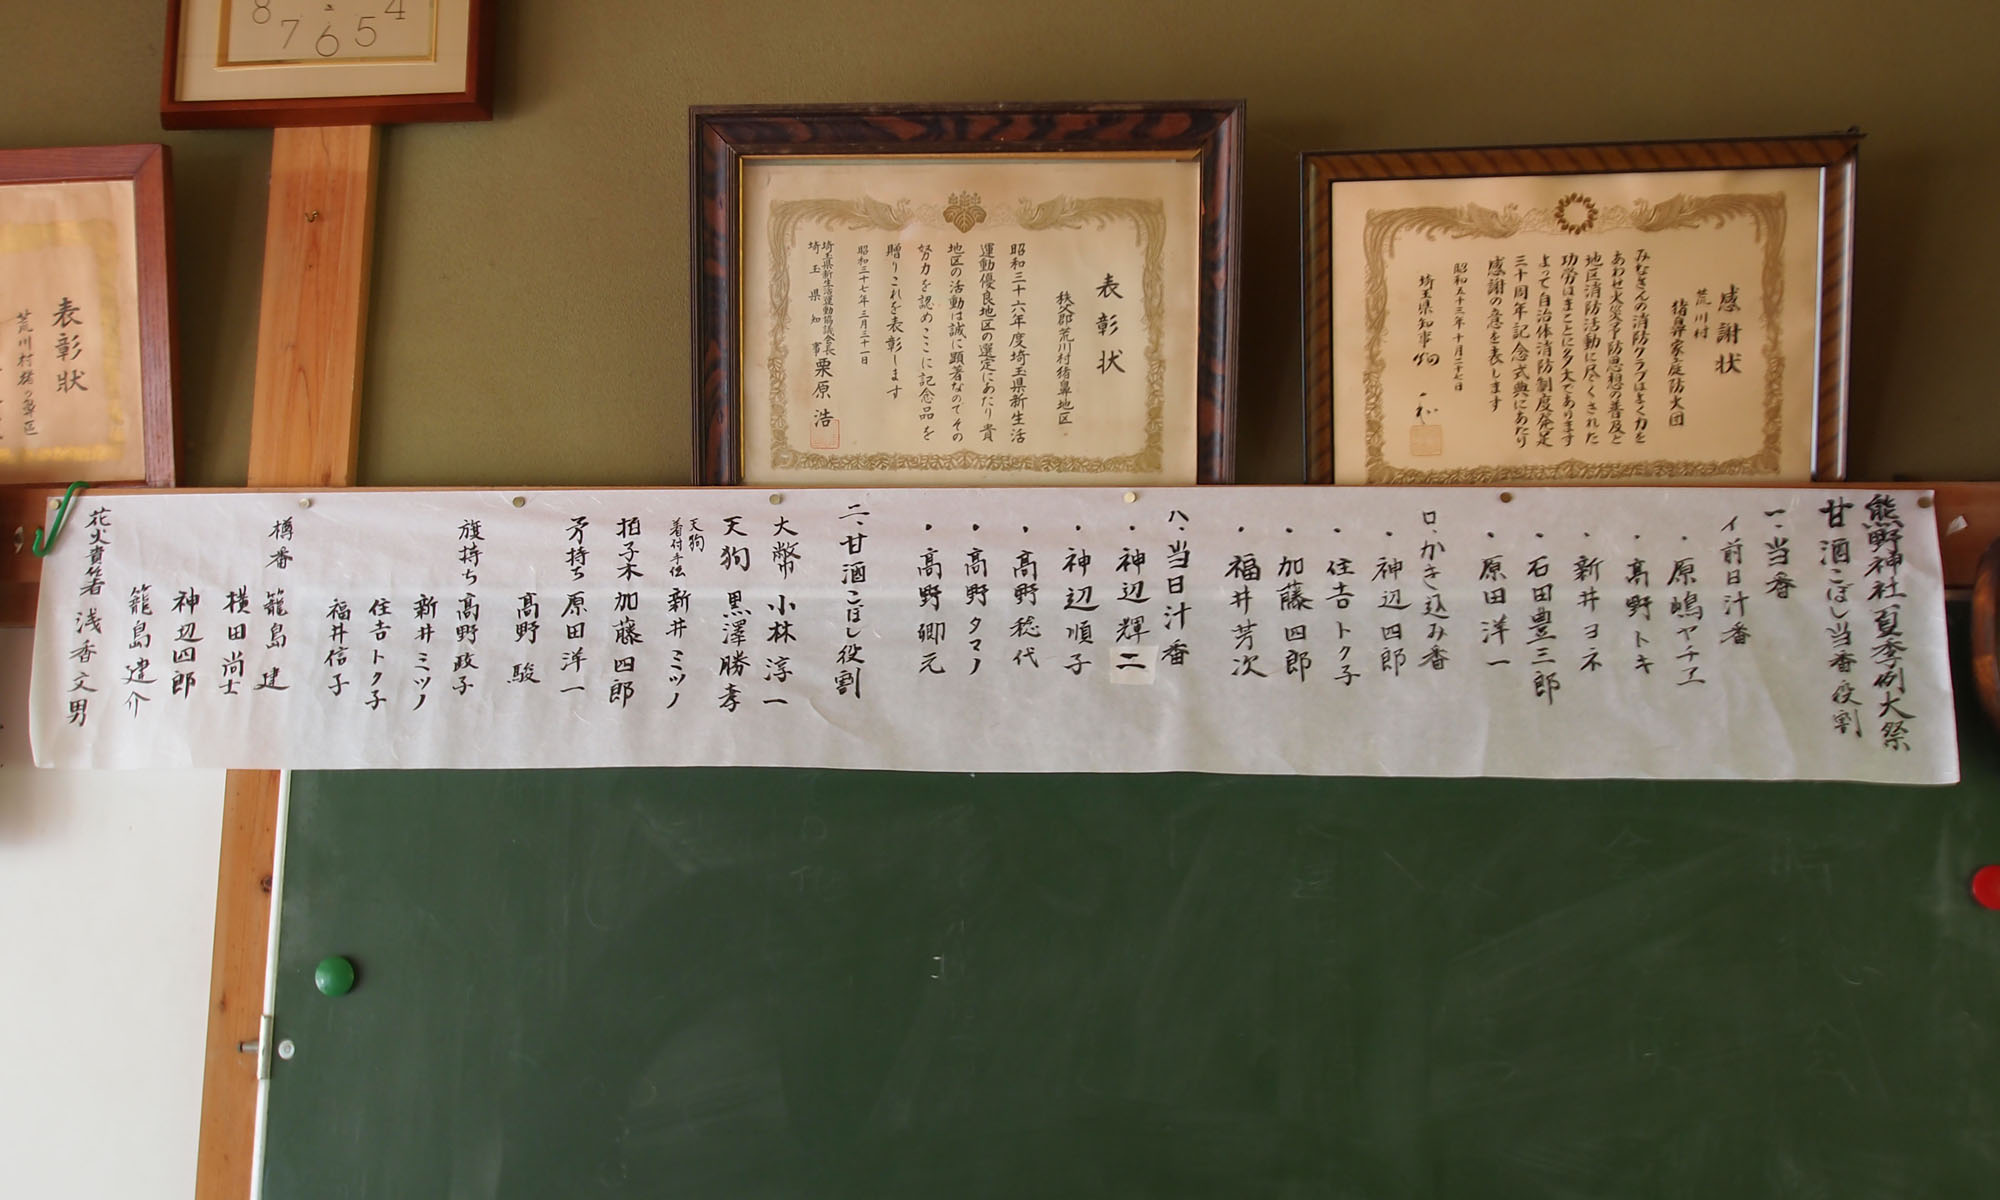 8 7 6 5 4
表彰状
荒川村猪の鼻区
表彰状
秩父郡荒川村猪鼻地区
昭和三十六年度埼玉県新生活
運動優良地区の選定にあたり貴
地区の活動は誠に顕著なのでその
努力を認めここに記念品を
贈りこれを表彰します
昭和三十七年三月三十一日
埼玉県新生活運動協議会長
埼玉県知事
栗原浩
感謝状
荒川村
猪鼻家庭防火団
みなさんの消防クラブはよく力を
あわせ火災予防思想の普及と
地区消防活動に尽くされた
功労はまことに多大であります
よって自治体消防制度発足
三十周年記念式典にあたり
感謝の意を表します
昭和五十三年十月二十七日
埼玉県知事
熊野神社夏季例大祭
甘酒こぼし当番役割
一、当番
イ前日汁番
・原嶋ヤチエ
・高野トキ
・新井ヨネ
・石田豊三郎
・原田洋一
ロ、かき込み番
・神辺四郎
・住吉トク子
・加藤四郎
・福井芳次
ハ、当日汁番
・神辺輝二
・神辺順子
・高野稔代
・高野タマノ
・高野郷元
二、甘酒こぼし役割
大幣 小林淳一
天狗 黒澤勝孝
天狗着付手伝 新井ミツノ
拍子木 加藤四郎
矛持ち 原田洋一
高野駿
旗持ち 高野政子
新井ミツノ
住吉トク子
福井信子
樽番 籠島建
横田尚士
神辺四郎
籠島建介
花火責任者 浅香文男